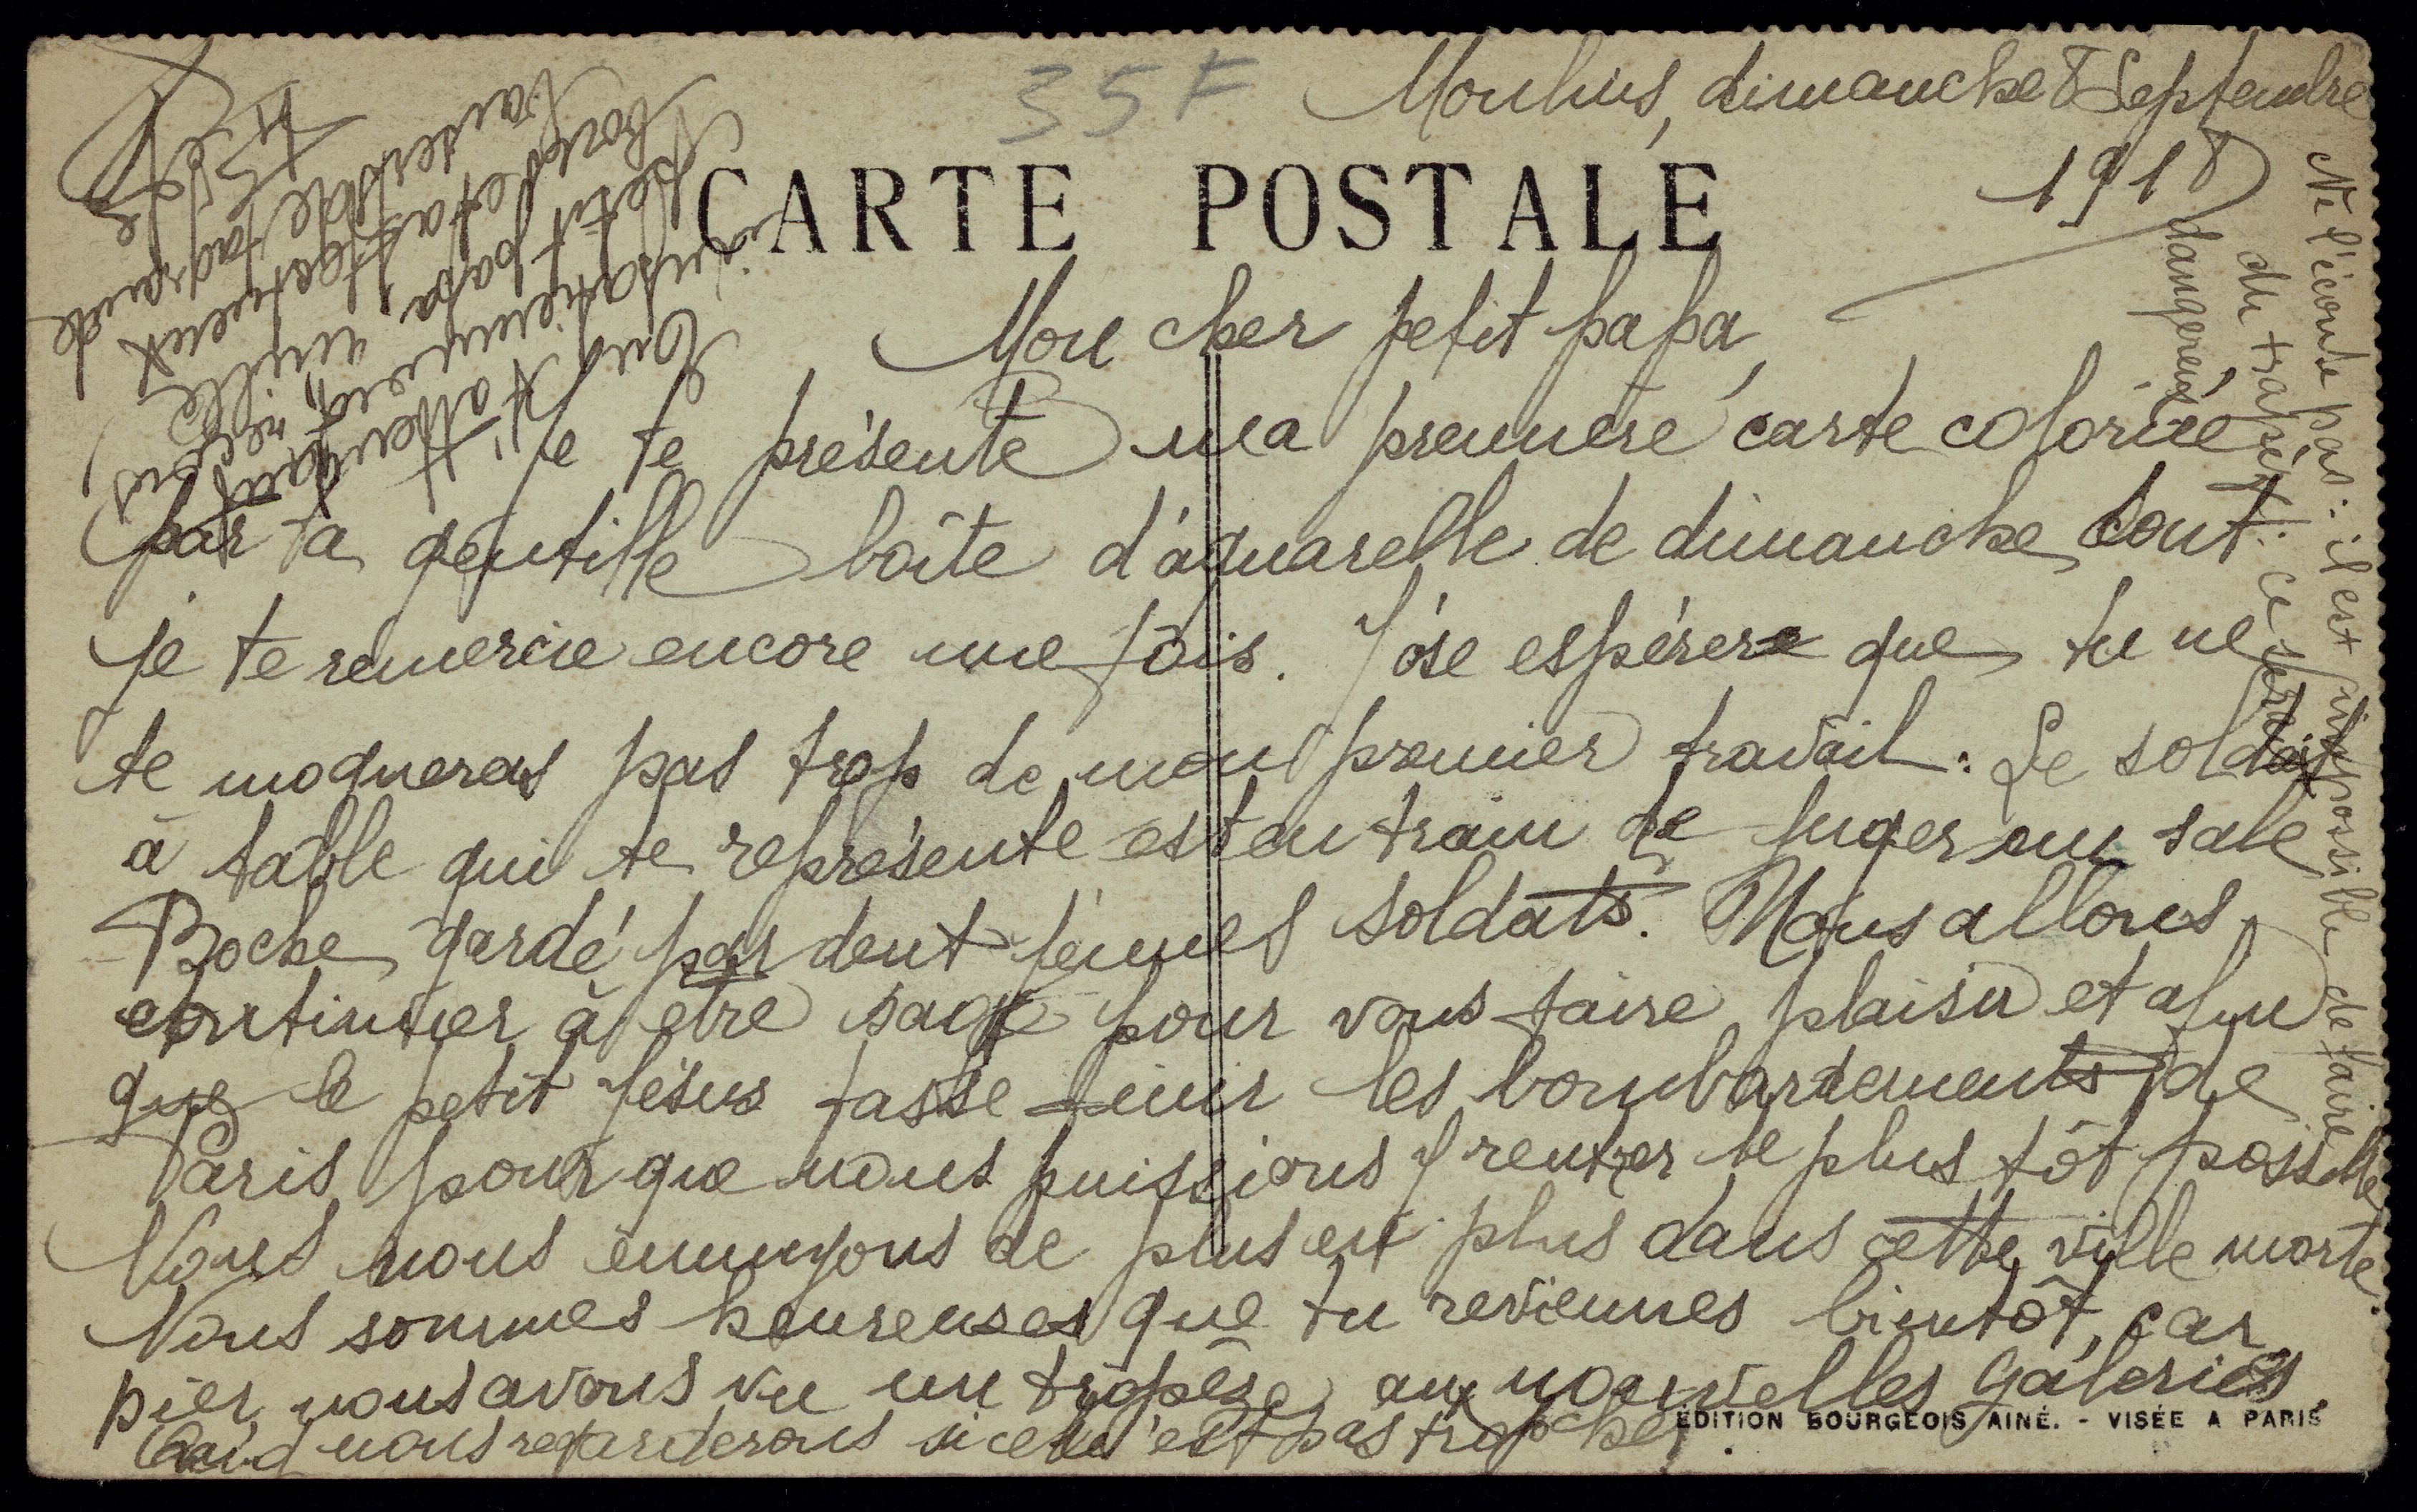 35F
Moulins, dimanche 8 Septembre
1918
CARTE POSTALE
Mon cher petit papa,
Je te présente ma première carte coloriée
par ta gentille boîte d'aquarelle de dimanche dont
je te remercie encore une fois. J'ose espérer que tu ne
te moqueras pas trop de mon premier travail : Le soldat
à table qui te représente est en train de juger un sale
Boche gardé par deux jeunes soldats. Nous allons
continuer à être sage pour vous faire plaisir et afin
que le petit Jésus fasse finir les bombardements de
Paris pour que nous puissions y rentrer le plus tôt possible
Nous nous ennuyons de plus en plus dans cette ville morte.
Nous sommes heureuses que tu reviennes bientôt, car
hier nous avons vu un trapèze aux nouvelles Galeries.
nous regarderons si ce n'est pas trop cher.
EDITION BOURGEOIS AINÉ. - VISÉE A PARIS
Ne l'écoute pas : il est impossible de faire
du trapèze : ce serait
dangereux
En t'attendant
impatiemment, reçois
petit papa, mille
bons et affectueux
baisers de ta grande